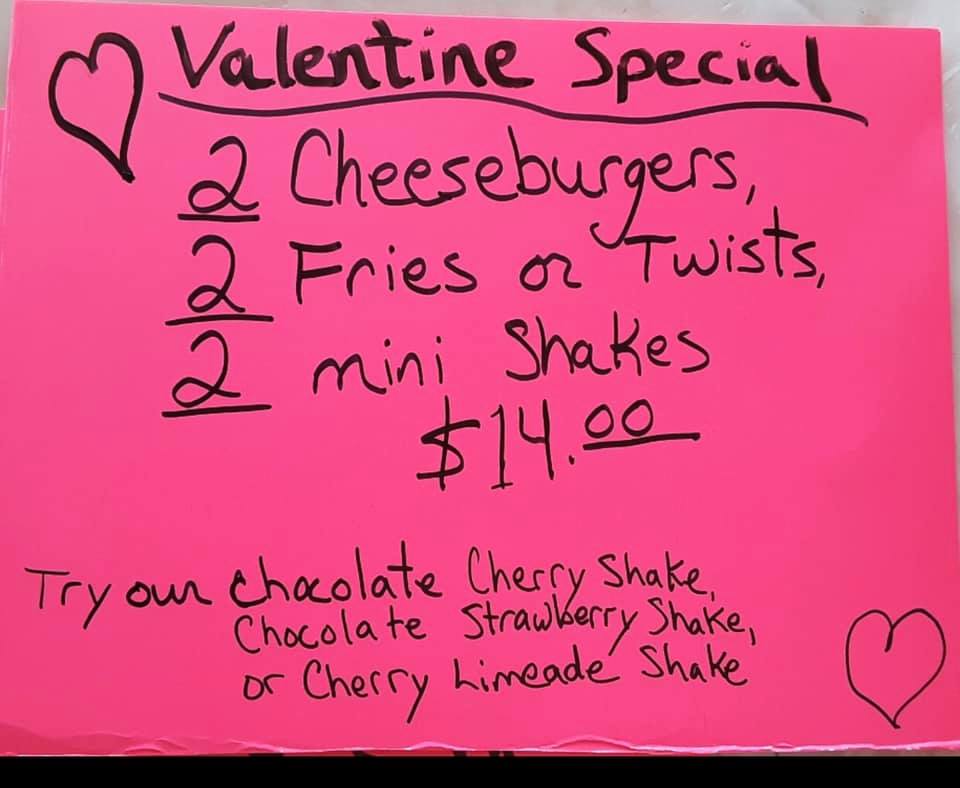 Valentine Special
2 Cheeseburgers,
2 Fries or Twists,
2 mini Shakes
$14.00
Try our Chocolate Cherry Shake,
Chocolate Strawberry Shake,
or Cherry Limeade Shake